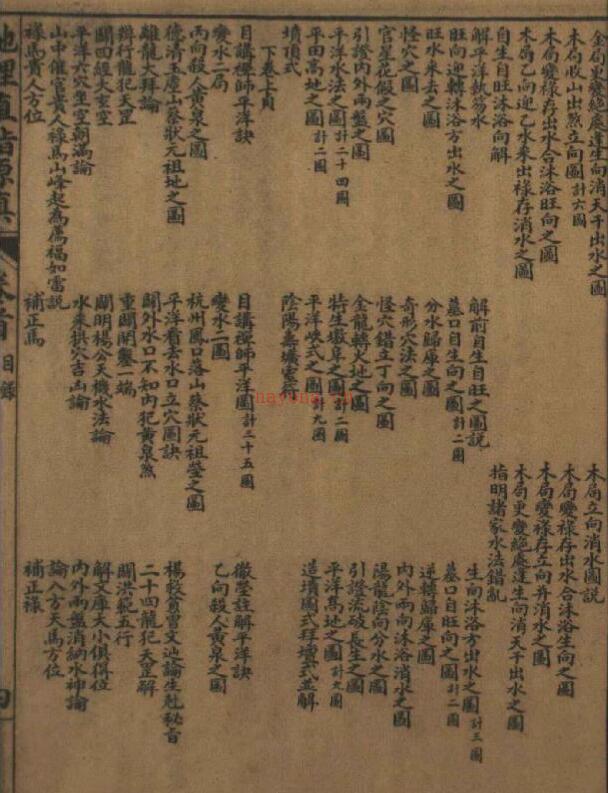 金局更變絕處逢生向消天干出水之圖
木局立向消水圖說
木局收山出煞立向圖計六圖
木局變祿存出水合沐浴生向之圖
木局變祿存出水合沐浴旺向之圖
木局變祿存立向并消水之圖
木局乙向迎乙水來出祿存消水之圖
木局更變絕處逢生向消天干出水之圖
自生自旺沐浴向解
解前自生自旺之圖說
指明諸家水法錯亂
解平洋飲芴水
墓口自生向之圖計二圖
生向沐浴方出水之圖計三圖
旺向迎轉沐浴方出水之圖
分水歸庫之圖
墓口自旺向之圖計二圖
旺水來去之圖
奇形穴法之圖
逆轉歸庫之圖
怪穴之圖
怪穴錯立丁向之圖
內外兩向沐浴消水之圖
官星花假之穴圖
金龍轉火地之圖
陽龍陰向分水之圖
引證內外兩盤之圖
特生墩阜之圖計二圖
引證流破長生之圖
平洋水法之圖計二十四圖
平洋峽式之圖計九圖
平洋高地之圖計九圖
平田高地之圖計二圖
陰陽基壙處所
造墳圖式拜壇式並解
墳頂式
下卷上頁
目講禪師平洋訣
目講禪師平洋圖計三十五圖
徽瑩註解平洋訣
變水二局
變水二圖
乙向殺人黃泉之圖
丙向殺人黃泉之圖
杭州風口落山蔡狀元祖塋之圖
楊救貧曾文辿論生尅秘旨
德清玉塵山蔡狀元祖地之圖
平洋看去水口立穴圖訣
二十四龍犯天罡解
離龍大拜論
關外水口不知內犯黃泉煞
闢洪範五行
辨行龍犯天罡
重關開鑿一端
解文庫大小俱得位
闢四經大玄空
闢明楊公天機水法論
內外兩盤消納水神論
平洋六穴坐空朝滿論
水來拱穴吉凶論
論八方天馬方位
山中催官貴人祿馬山峰起為應福如雷說
補正馬
補正祿
祿馬貴人方位
地理直指原真
卷首
目錄
四
hayuna.cn